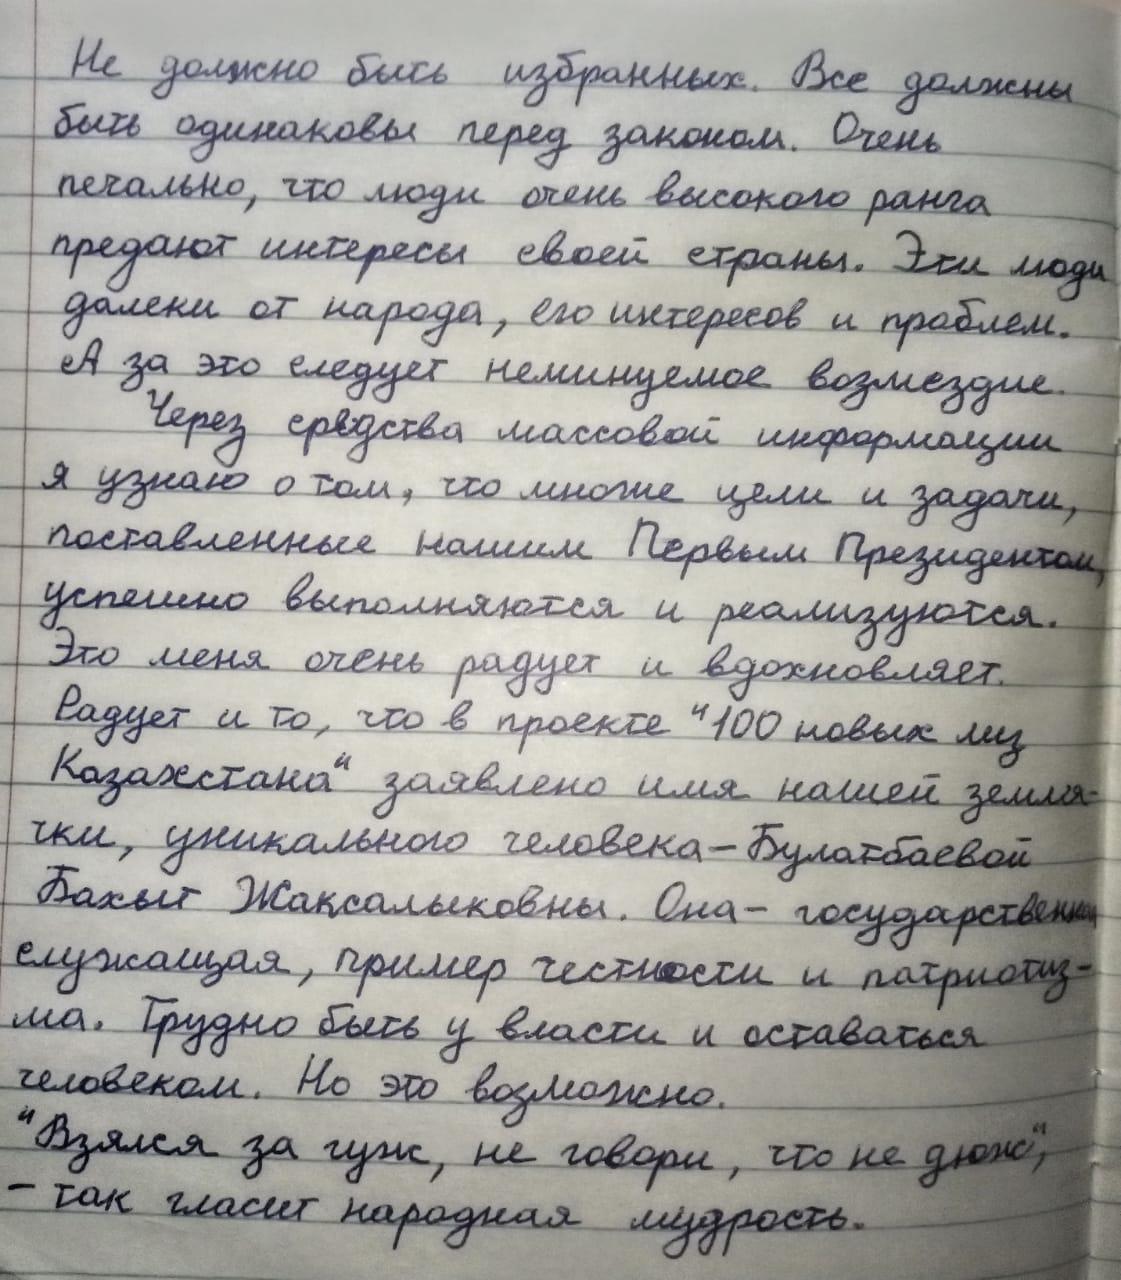 Не должно быть избранных. Все должны
быть одинаковы перед законом. Очень
печально, что люди очень высокого ранга
предают интересы своей страны. Эти люди
далеки от народа, его интересов и проблем.
А за это следует неминуемое возмездие.
Через средства массовой информации
я узнаю о том, что многие цели и задачи,
поставленные нашим Первым Президентом,
успешно выполняются и реализуются.
Это меня очень радует и вдохновляет.
Радует и то, что в проекте "100 новых лиц
Казахстана" заявлено имя нашей земля-
чки, уникального человека - Булатбаевой
Бахыт Жаксалыковны. Она - государственная
служащая, пример честности и патриотиз-
ма. Трудно быть у власти и оставаться
человеком. Но это возможно.
"Взялся за гуж, не говори, что не дюж",
- так гласит народная мудрость.